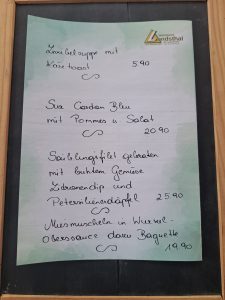 Landsthal
Zwiebelsuppe mit
Käsetoast 5.90
Sva Cordon Bleu
mit Pommes u. Salat
20.90
Saiblingsfilet gebraten
mit buntem Gemüse
Zitronendip und
Petersilienerdäpfel 25.90
Miesmuscheln in Wurzel-
Oberssauce dazu Baguette
19.90